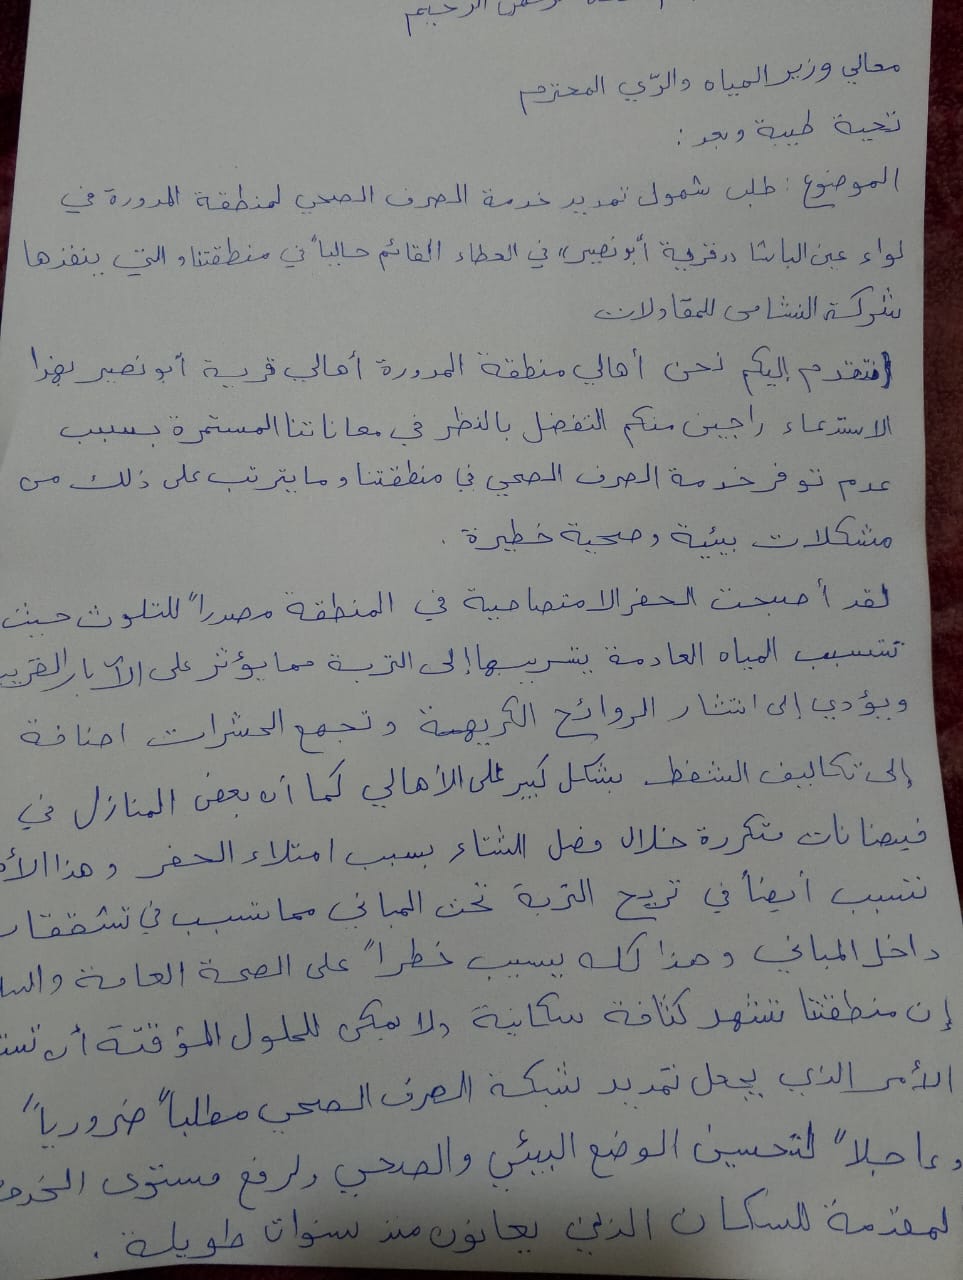 الرحمن الرحيم
معالي وزير المياه والرّي المحترم
تحية طيبة وبعد :
الموضوع : طلب شمول تمديد خدمة الصرف الصحي لمنطقة المدورة في
لواء عين الباشا "قرية أبو نصير" في العطاء القائم حالياً في منطقتنا والتي ينفذها
شركة النشامى للمقاولات
نتقدم إليكم نحن أهالي منطقة المدورة أهالي قرية أبو نصير بهذا
الاستدعاء راجين منكم التفضل بالنظر في معاناتنا المستمرة بسبب
عدم توفر خدمة الصرف الصحي في منطقتنا وما يترتب على ذلك من
مشكلات بيئية وصحية خطيرة .
لقد أصبحت الحفر الامتصاصية في المنطقة مصدراً للتلوث حيث
تتسبب المياه العادمة بتسريبها إلى التربة مما يؤثر على الآبار القريب
ويؤدي إلى انتشار الروائح الكريهة وتجمع الحشرات اضافة
إلى تكاليف الشفط بشكل كبير على الأهالي كما أن بعض المنازل في
فيضانات متكررة خلال فصل الشتاء بسبب امتلاء الحفر وهذا الأ
تتسبب أيضاً في تريح التربة تحت المباني مما تسبب في تشققا
داخل المباني وهذا كله يسبب خطراً على الصحة العامة والسلا
إن منطقتنا تشهد كثافة سكانية ولا يمكن للحلول المؤقتة أن تست
الأمر الذي يجعل تمديد شبكة الصرف الصحي مطلباً ضرورياً
وعاجلاً لتحسين الوضع البيئي والصحي ولرفع مستوى الخدم
لمقدمة للسكان الذين يعانون منذ سنوات طويلة .